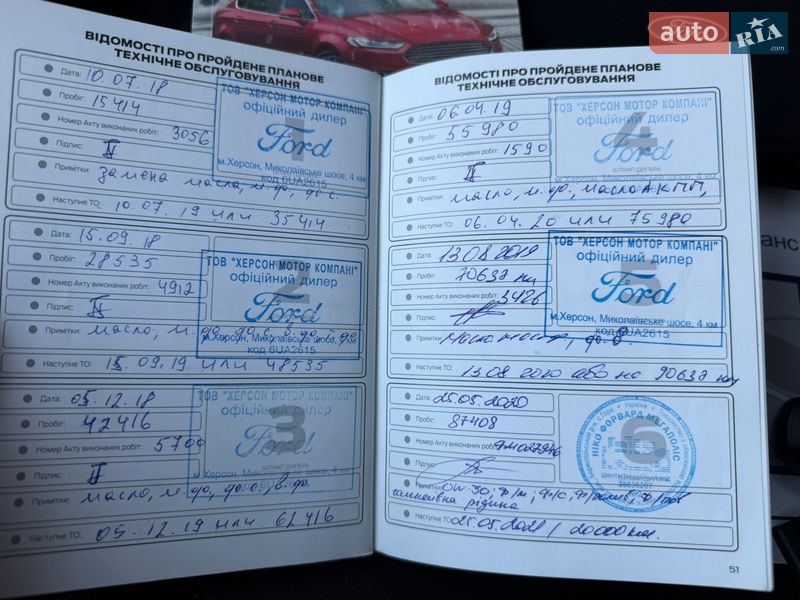 auto RIA .com
ВІДОМОСТІ ПРО ПРОЙДЕНЕ ПЛАНОВЕ
ТЕХНІЧНЕ ОБСЛУГОВУВАННЯ
Дата: 10.07.18
Пробіг: 15414
Номер Акту виконаних робіт: 3056
Підпис:
Примітки: замена масла, м.ф., ф.с.
Наступне ТО: 10.07.19 или 35414
1
ТОВ "ХЕРСОН МОТОР КОМПАНІ"
офіційний дилер
Ford
м.Херсон, Миколаївське шосе, 4 км
код 6UA2615
Дата: 15.09.18
Пробіг: 28535
Номер Акту виконаних робіт: 4912
Підпис:
Примітки: масло,
Наступне ТО: 15.09.19 или 48535
2
ТОВ "ХЕРСОН МОТОР КОМПАНІ"
офіційний дилер
Ford
м.Херсон, Миколаївське шосе, 4 км
код 6UA2615
Дата: 05.12.18
Пробіг: 42416
Номер Акту виконаних робіт: 5700
Підпис:
Примітки: масло,
Наступне ТО: 05.12.19 или 62416
3
ТОВ "ХЕРСОН МОТОР КОМПАНІ"
офіційний дилер
Ford
ШТАМП ДИЛЕРА
м.Херсон, Миколаївське шосе, 4 км
код 6UA2615
ВІДОМОСТІ ПРО ПРОЙДЕНЕ ПЛАНОВЕ
ТЕХНІЧНЕ ОБСЛУГОВУВАННЯ
Дата: 06.04.19
Пробіг: 55980
Номер Акту виконаних робіт: 1590
Підпис:
Примітки: масло, масло АКПП,
Наступне ТО: 06.04.20 или 75980
4
ТОВ "ХЕРСОН МОТОР КОМПАНІ"
офіційний дилер
Ford
ШТАМП ДИЛЕРА
м.Херсон, Миколаївське шосе, 4 км
код 6UA2615
Дата: 13.08.2019
Пробіг: 70637 км
Номер Акту виконаних робіт: 3426
Підпис:
Примітки:
Наступне ТО: 13.08.2020 або на 90637 км
5
ТОВ "ХЕРСОН МОТОР КОМПАНІ"
офіційний дилер
Ford
м.Херсон, Миколаївське шосе, 4 км
код 6UA2615
Дата: 25.05.2020
Пробіг: 87408
Номер Акту виконаних робіт:
Підпис:
Примітки:
рідина
Наступне ТО: 25.05.2021 / 20000км.
6
НІКО ФОРВАРД МЕГАПОЛІС
Україна
51